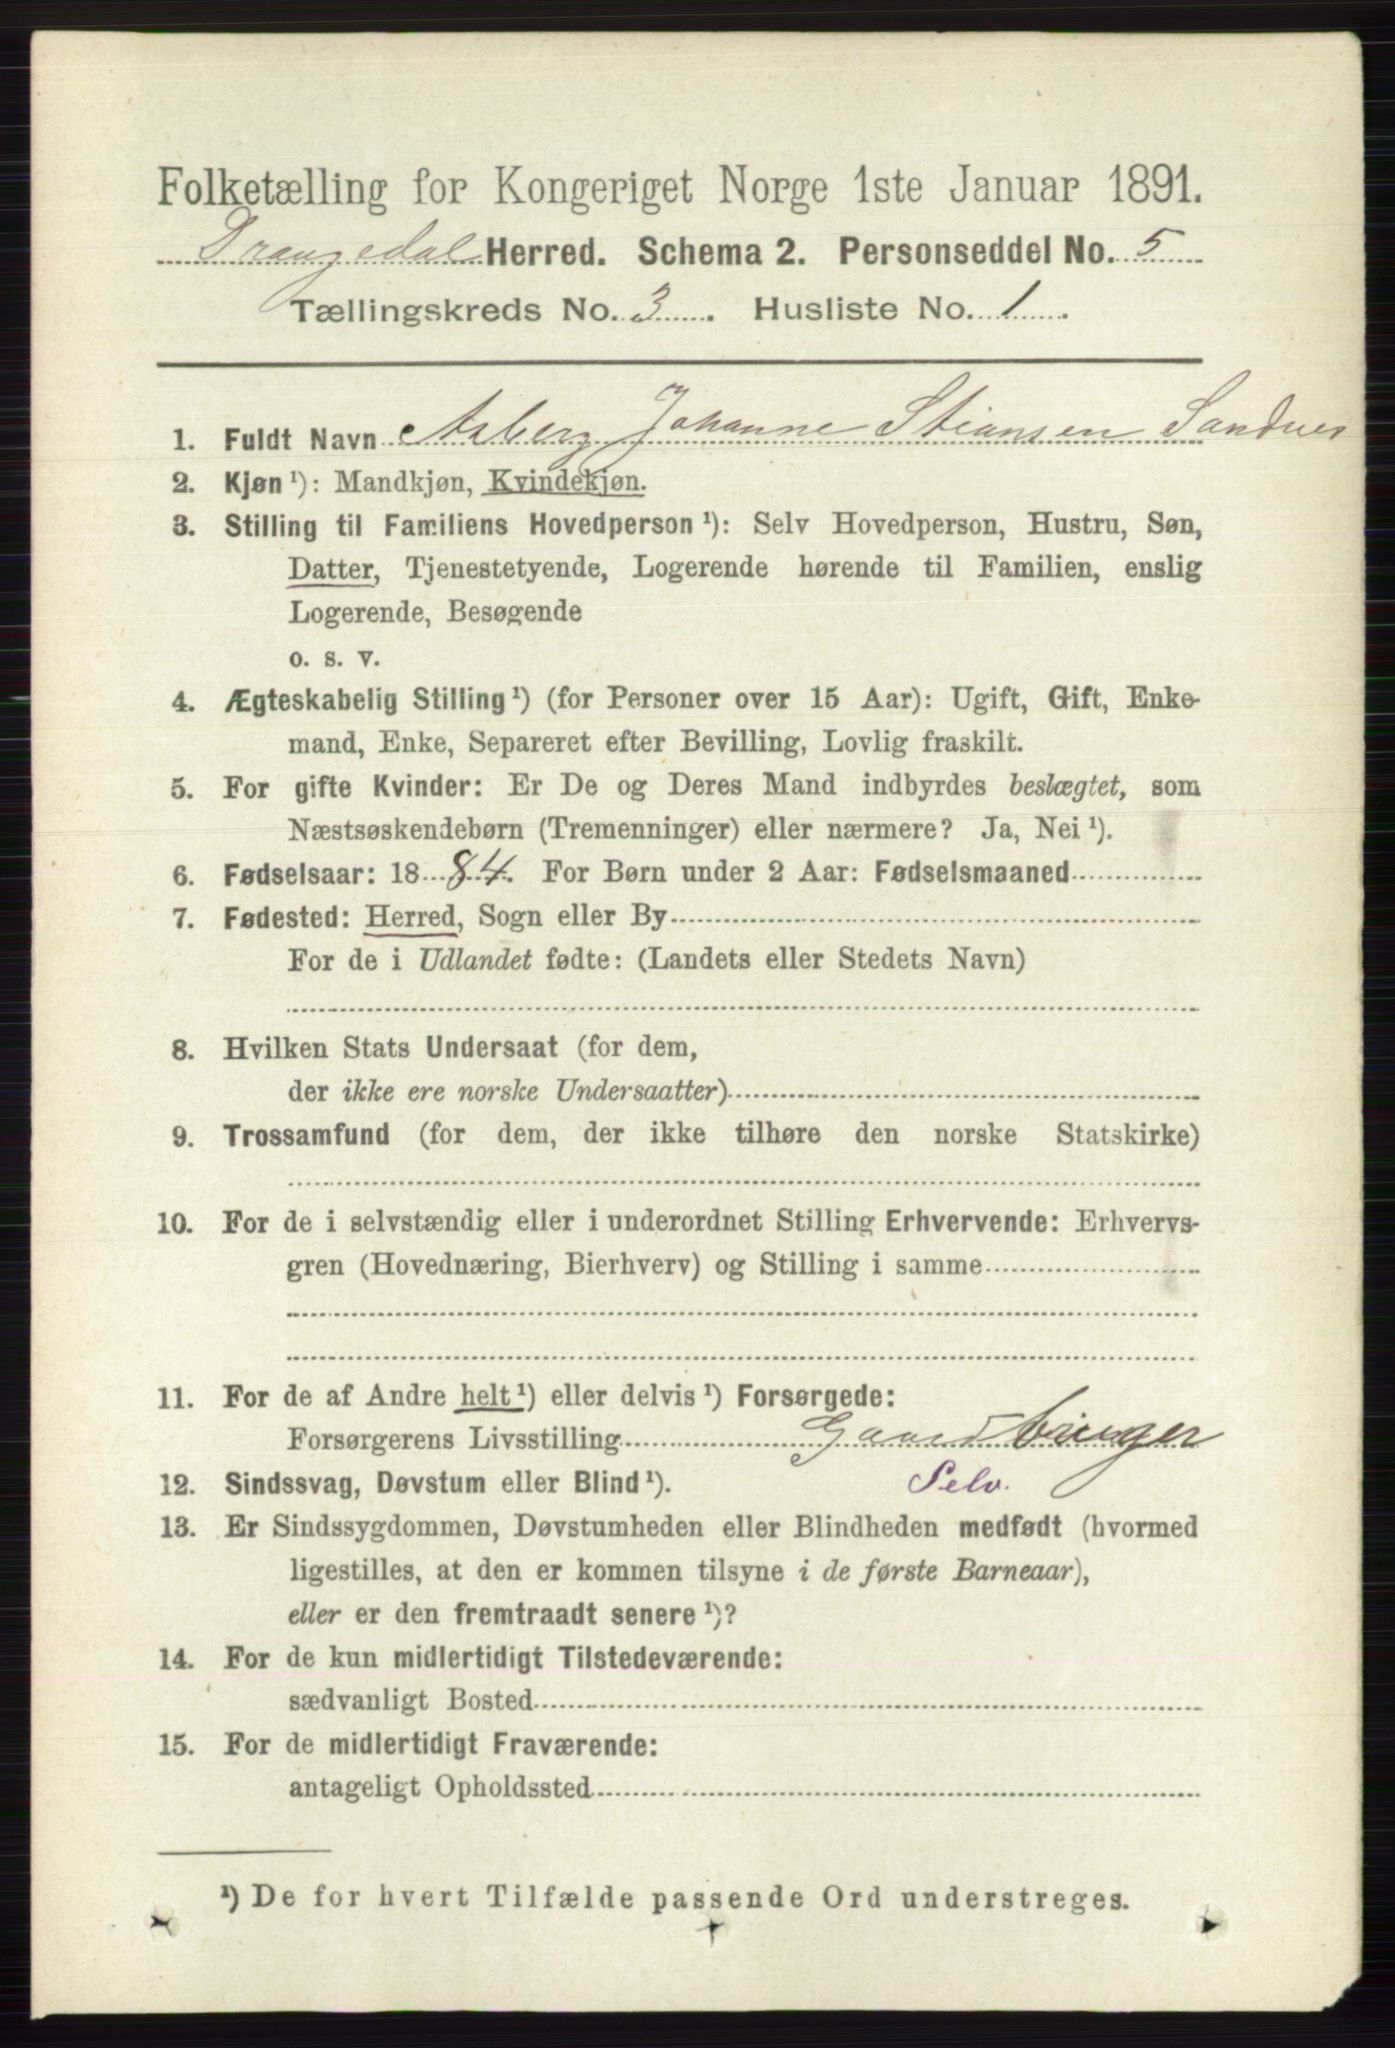 Folketælling for Kongeriget Norge 1ste Januar 1891.
Drangedal Herred. Schema 2. Personseddel No. 5
Tællingskreds No. 3. Husliste No. 1.
1. Fuldt Navn Asberg Johanne Stiansen Sandnes
2. Kjøn ¹): Mandkjøn, Kvindekjøn.
3. Stilling til Familiens Hovedperson ¹): Selv Hovedperson, Hustru, Søn,
Datter, Tjenestetyende, Logerende hørende til Familien, enslig
Logerende, Besøgende
o. s. v.
4. Ægteskabelig Stilling ¹) (for Personer over 15 Aar): Ugift, Gift, Enke-
mand, Enke, Separeret efter Bevilling, Lovlig fraskilt.
5. For gifte Kvinder: Er De og Deres Mand indbyrdes beslægtet, som
Næstsøskendebørn (Tremenninger) eller nærmere? Ja, Nei ¹).
6. Fødselsaar: 1884. For Børn under 2 Aar: Fødselsmaaned
7. Fødested: Herred, Sogn eller By
For de i Udlandet fødte: (Landets eller Stedets Navn)
8. Hvilken Stats Undersaat (for dem,
der ikke ere norske Undersaatter)
9. Trossamfund (for dem, der ikke tilhøre den norske Statskirke)
10. For de i selvstændig eller i underordnet Stilling Erhvervende: Erhvervs-
gren (Hovednæring, Bierhverv) og Stilling i samme
11. For de af Andre helt ¹) eller delvis ¹) Forsørgede:
Forsørgerens Livsstilling Gaardbruger
12. Sindssvag, Døvstum eller Blind ¹). Selv.
13. Er Sindssygdommen, Døvstumheden eller Blindheden medfødt (hvormed
ligestilles, at den er kommen tilsyne i de første Barneaar),
eller er den fremtraadt senere ¹)?
14. For de kun midlertidigt Tilstedeværende:
sædvanligt Bosted
15. For de midlertidigt Fraværende:
antageligt Opholdssted
¹) De for hvert Tilfælde passende Ord understreges.